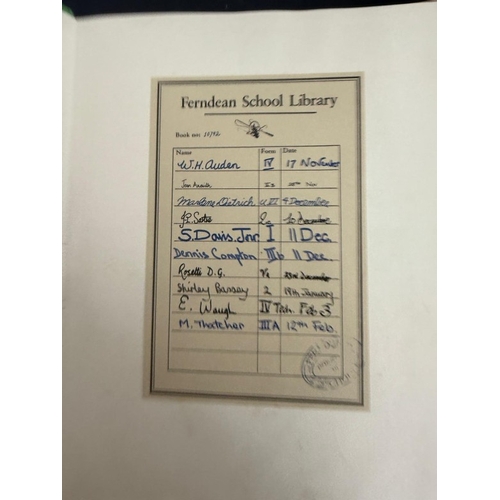 Ferndean School Library
Book no:
Name Form Date
W.H. Auden IV 17 November
Nov
Marlene Dietrich U VI 4 December
December
S. Davis. Jnr. I 11 Dec.
Dennis Compton IIIb 11 Dec.
Rosetti D.G. December
Shirley Bassey 2 19th January
E. Waugh IV Feb. 3
M. Thatcher IIIA 12th Feb.